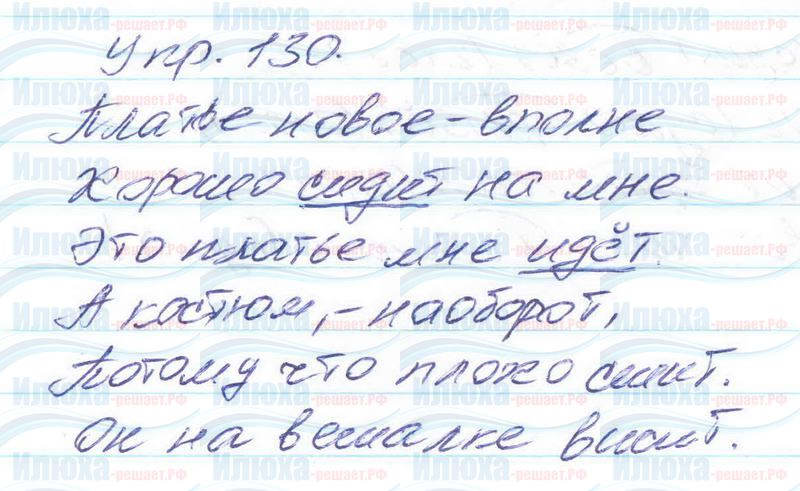 Упр. 130.
Платье новое – вполне
Хорошо сидит на мне.
Это платье мне идёт.
А костюм, – наоборот,
Потому что плохо сшит.
Он на вешалке висит.